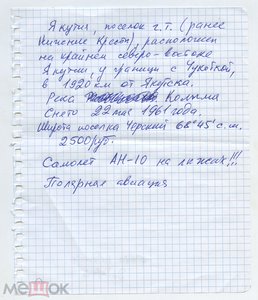 Якутия, поселок г.т. (ранее
Нижние Кресты) расположен
на крайнем северо-востоке
Якутии, у границы с Чукоткой,
в 1920 км от Якутска.
Река Колыма
Снято 22 мая 1961 года.
Широта поселка Черский 68°45' с.ш.
2500 руб.
Самолет АН-10 на лыжах!!!
Полярная авиация
Мешок